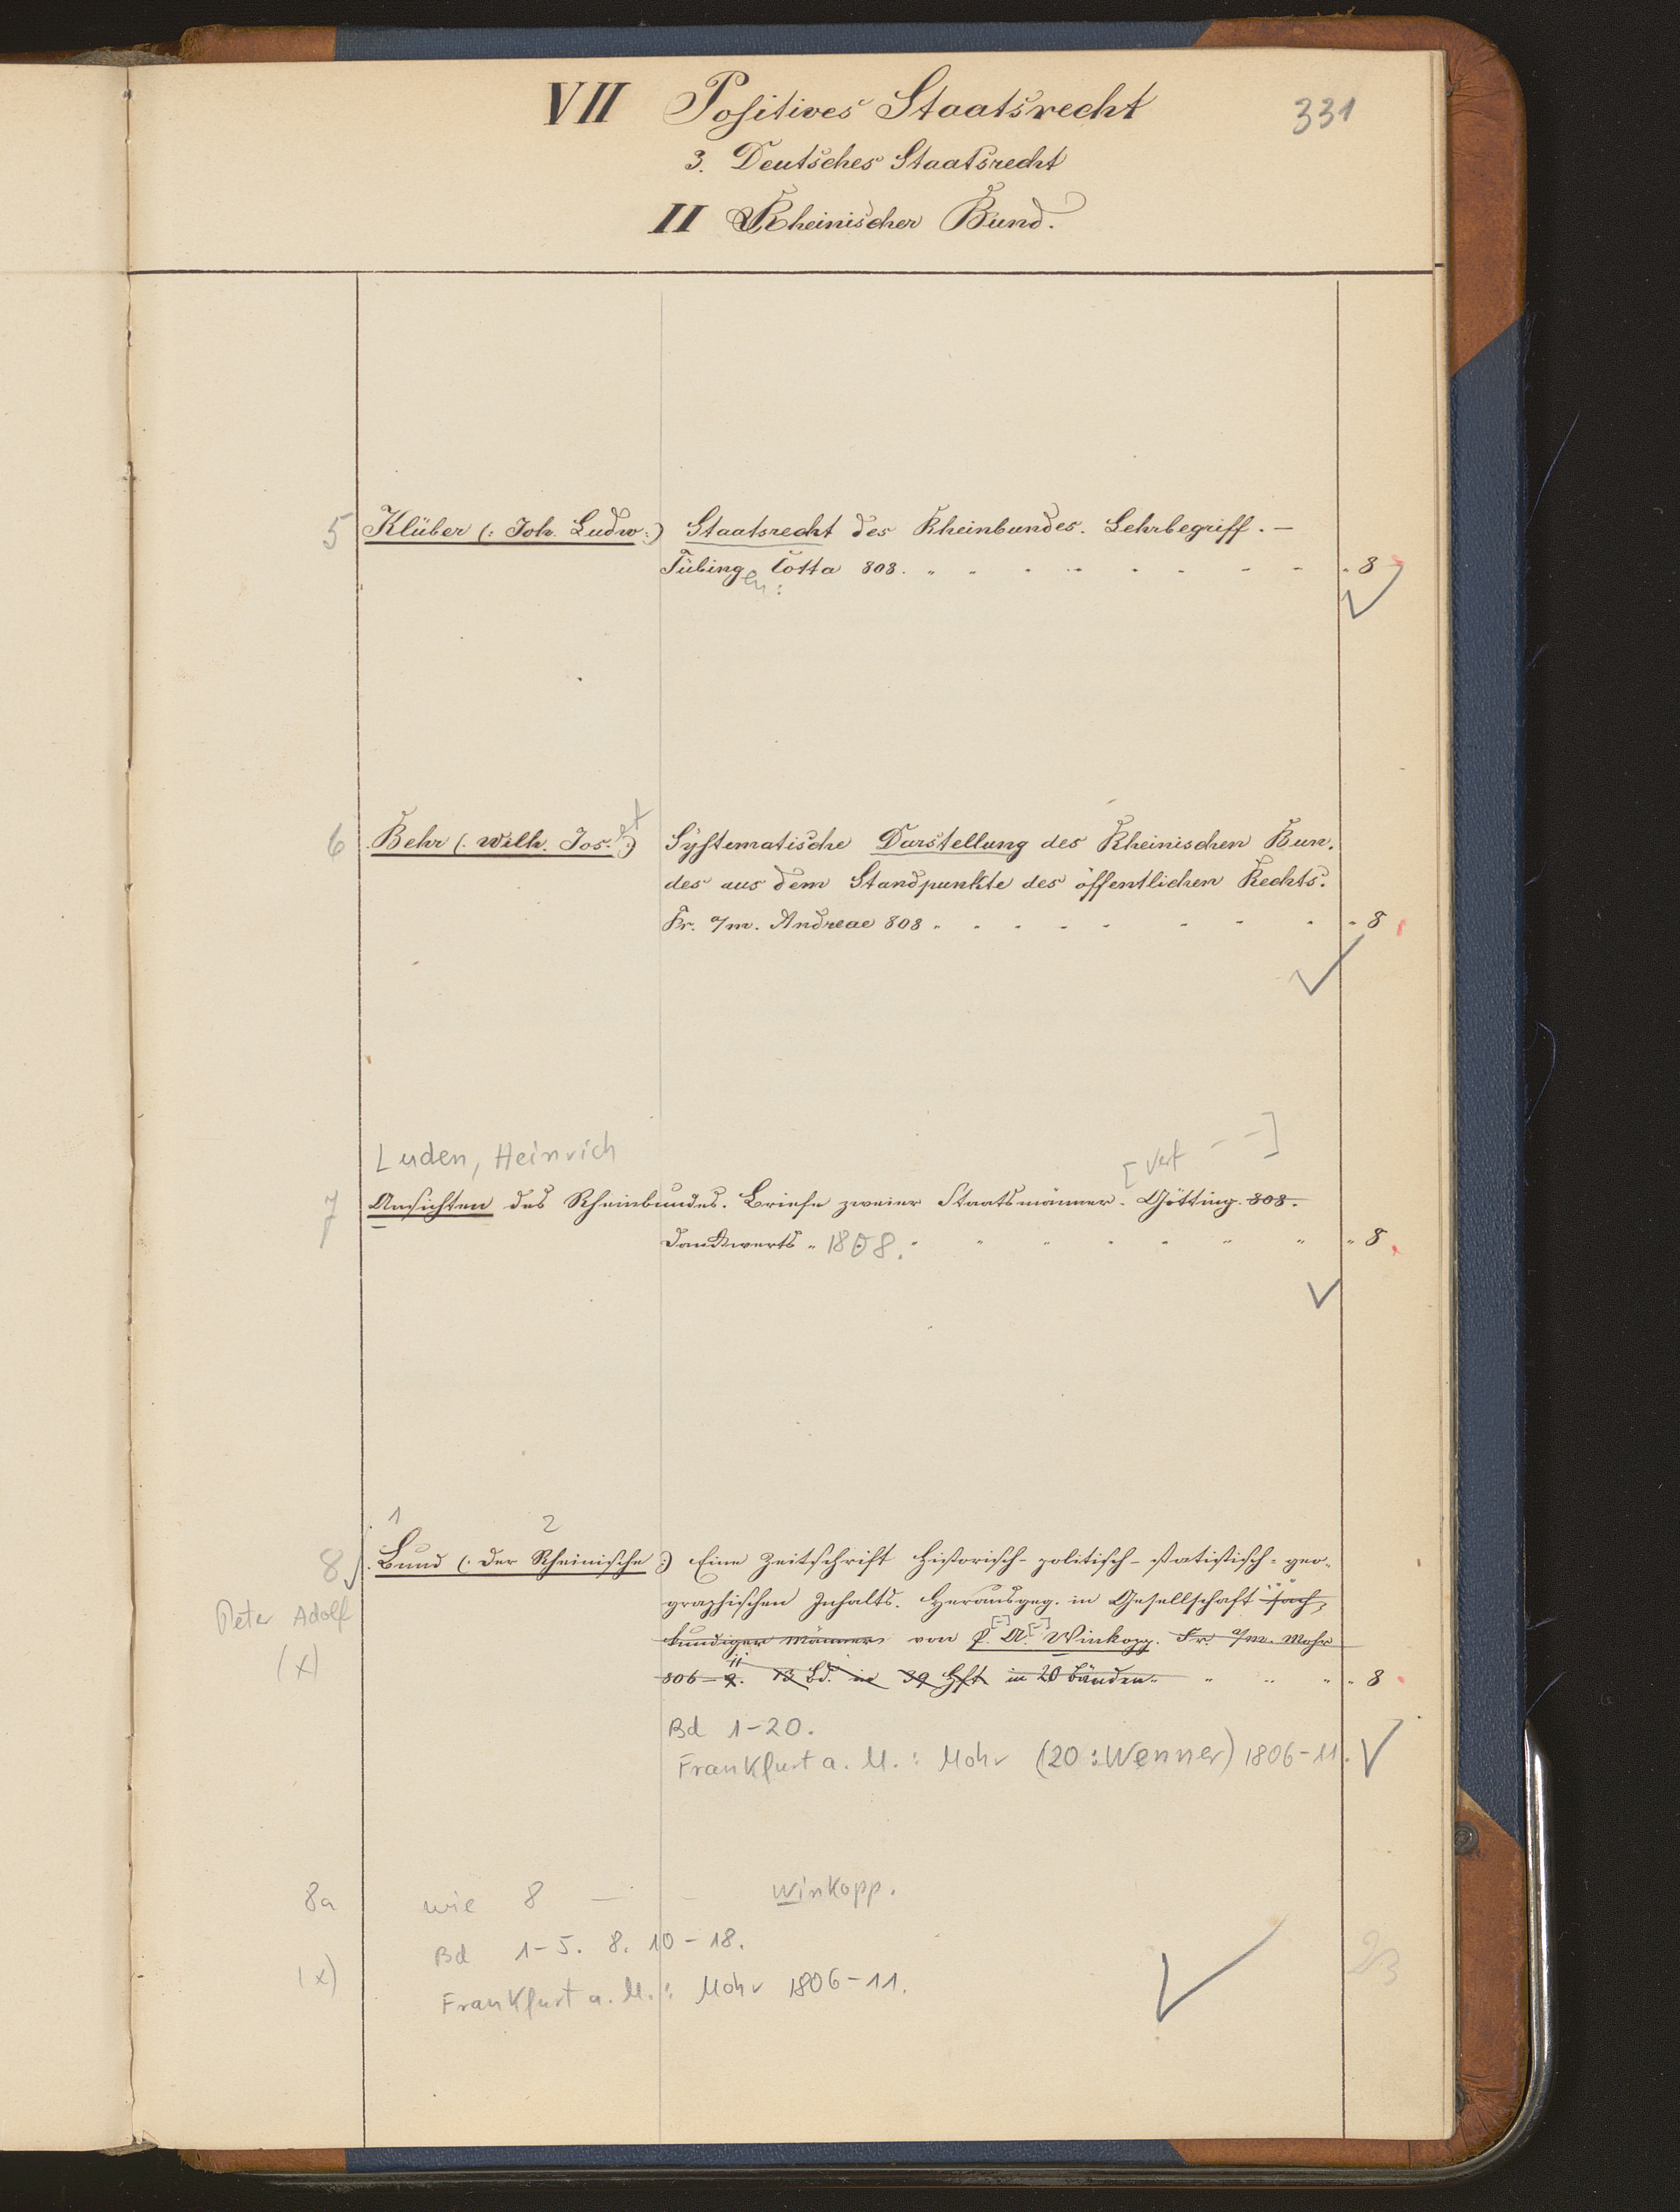 VII Positives Staatsrecht 331
3. Deutsches Staatsrecht
II Rheinischer Bund.
5 Klüber (: Joh. Ludw :) Staatsrecht des Rheinbundes. Lehrbegriff. –
Tübingen: Cotta 808. 8
6 Behr (: Wilh. Jos. :) Systematische Darstellung des Rheinischen Bun-
des aus dem Standpunkte des öffentlichen Rechts.
Fr. a/m. Andreae 808 8
Luden, Heinrich [Verf – –]
7 Ansichten des Rheinbundes. Briefe zweier Staatsmänner. Götting. 808.
Dankwerts 1808. 8
1 2
8 Bund (: der Rheinische :) Eine Zeitschrift historisch-politisch-statistisch-geo-
graphischen Inhalts. Herausgeg. in Gesellschaft sach-
Peter Adolf
kundiger Männer von P. A. Winkopp. Fr. a/m. Mohr
(x)
806 – 11 13 Bd. in 39 Hft in 20 Bänden 8
Bd 1-20.
Frankfurt a. M. : Mohr (20 : Wenner) 1806-11.
8a wie 8 — – Winkopp.
Bd 1-5. 8. 10-18.
(x) 23
Frankfurt a. M. : Mohr 1806-11.